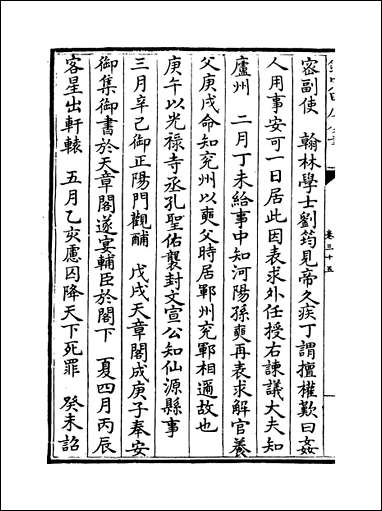 密副使　翰林學士劉筠見帝久疾丁謂擅權歎曰姦
人用事安可一日居此因表求外任授右諫議大夫知
廬州　二月丁未給事中知河陽孫奭再表求解官養
父庚戌命知兖州以奭父時居鄆州兖鄆相邇故也
庚午以光禄寺丞孔聖佑襲封文宣公知仙源縣事
三月辛己御正陽門觀酺　戊戌天章閣成庚子奉安
御集御書於天章閣遂宴輔臣於閣下　夏四月丙辰
客星出軒轅　五月乙亥慮囚降天下死罪　癸未詔
卷三十五